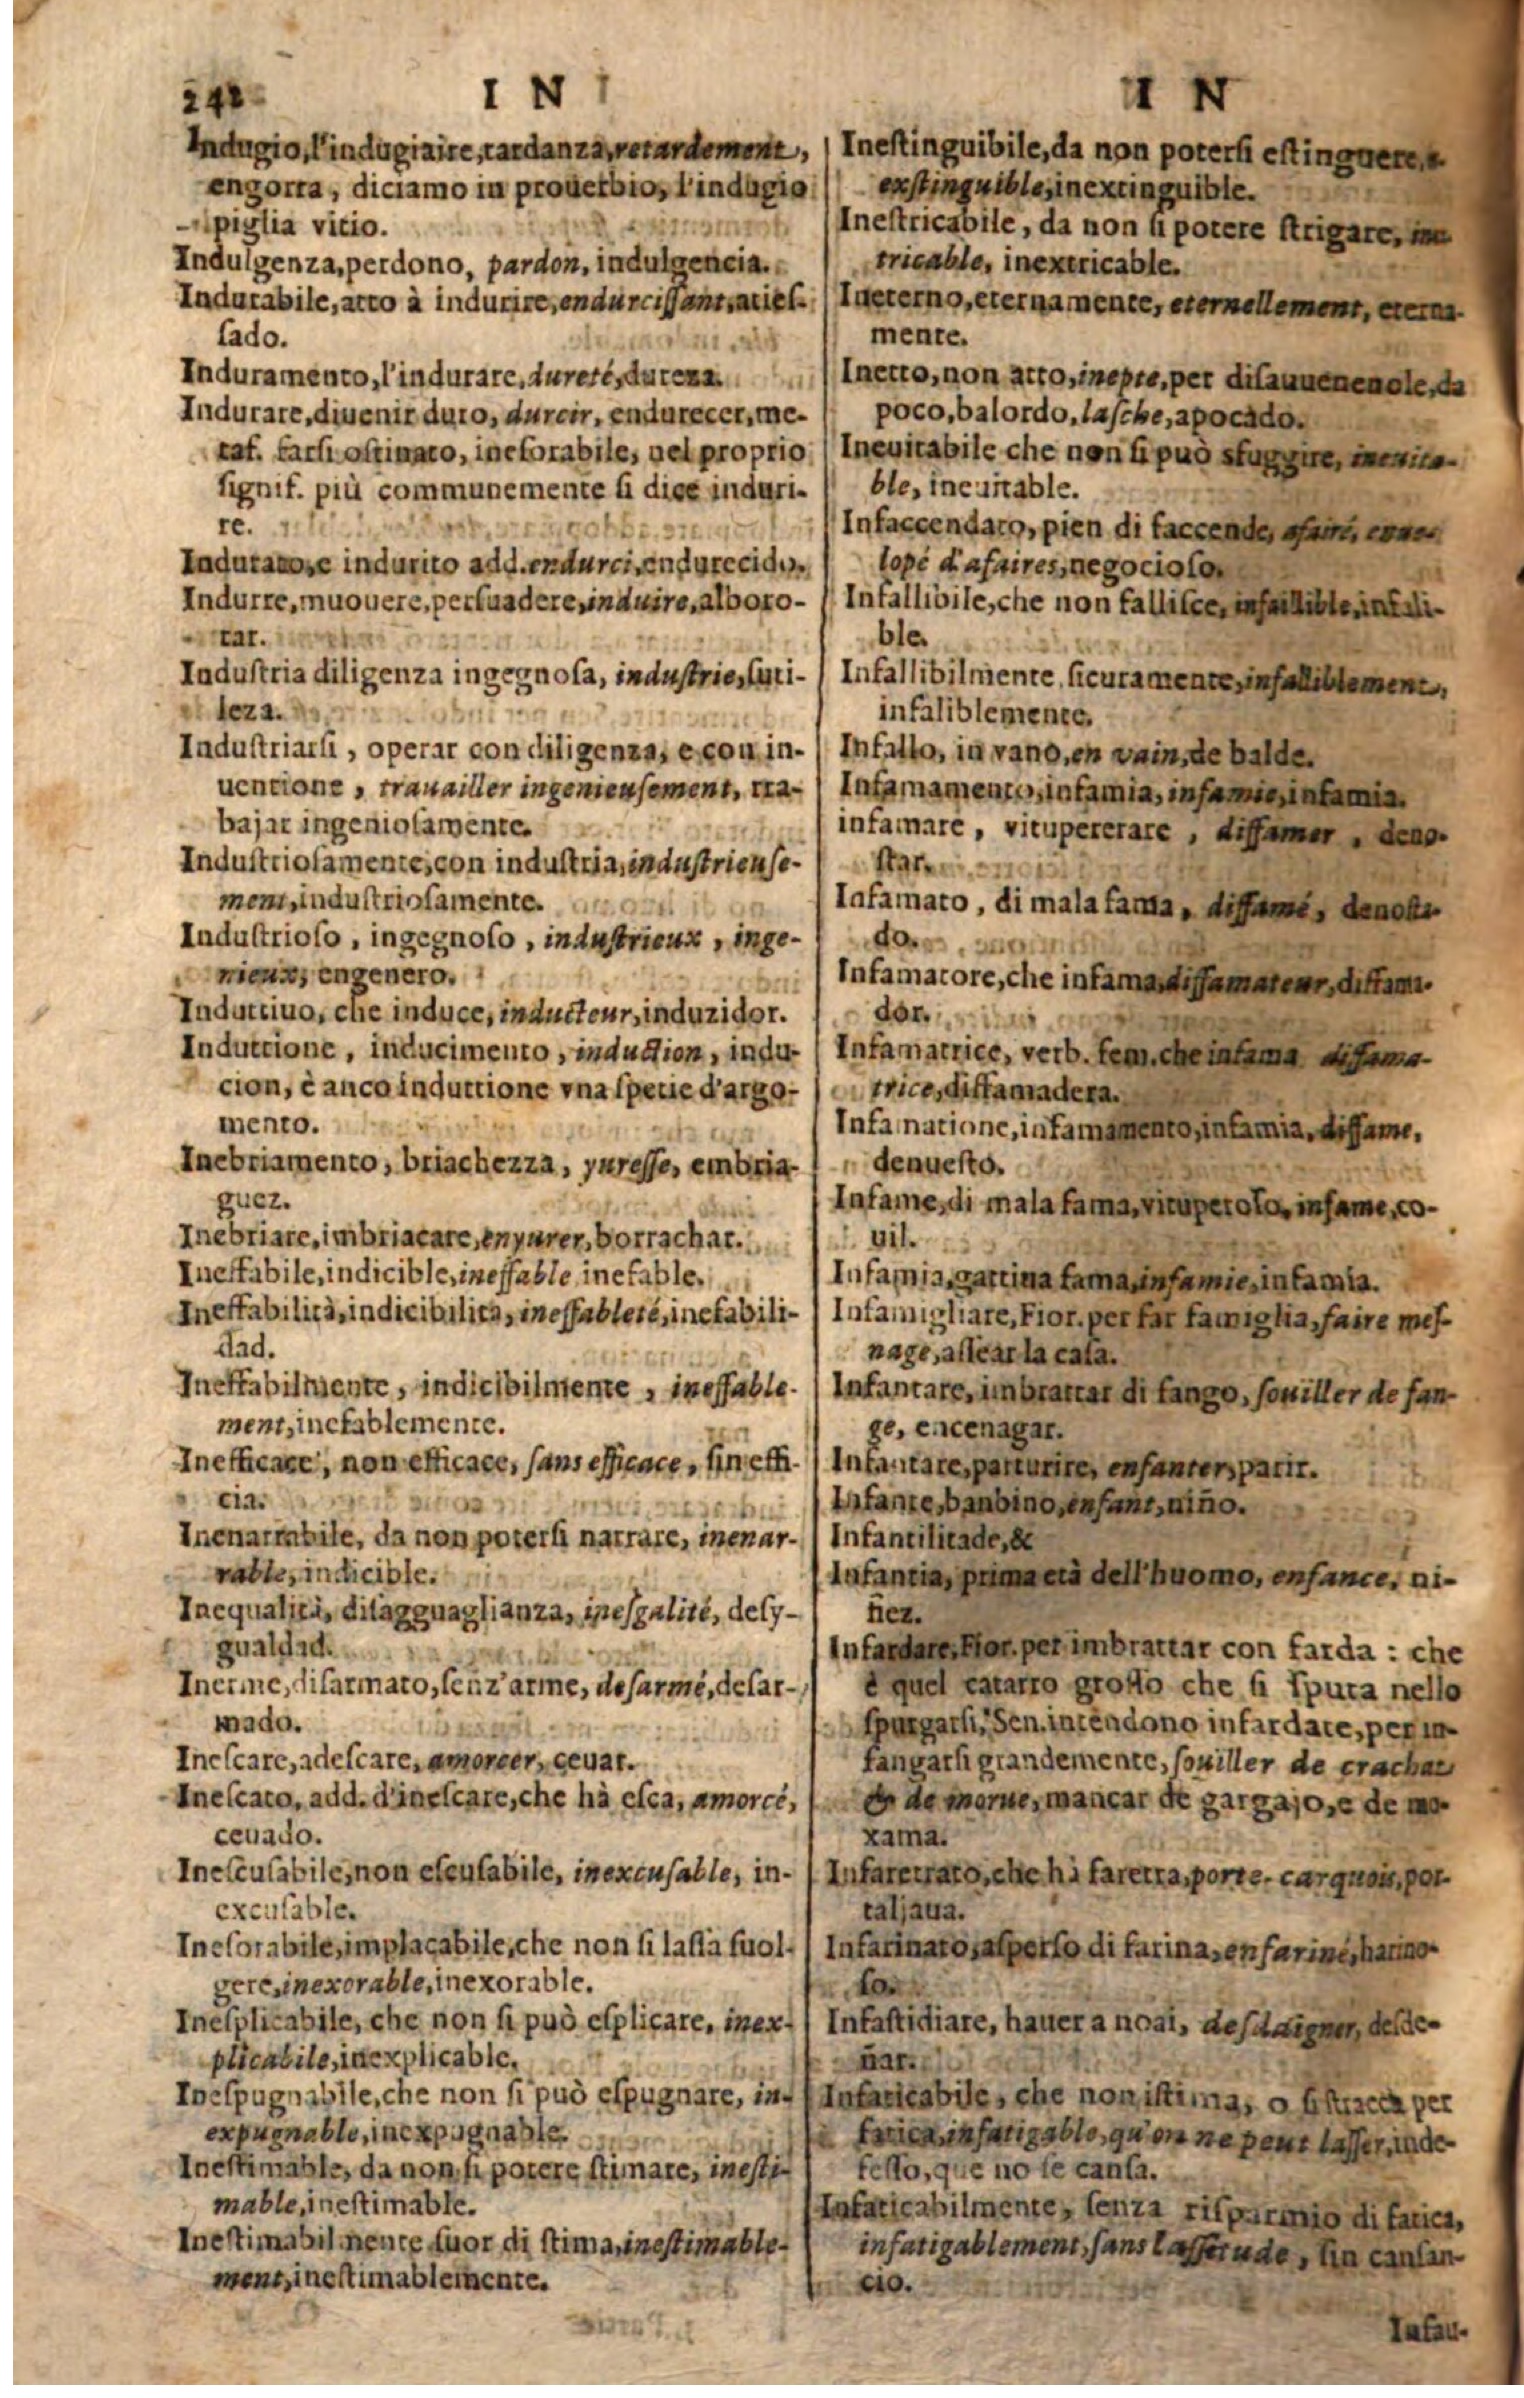 242 I N
Indugio, l'indugiaire, tardanza, retardement,
engorra, diciamo in prouerbio, l'indugio
piglia vitio.
Indulgenza, perdono, pardon, indulgencia.
Indurabile, atto à indurire, endurciſſant, atieſ-
ſado.
Induramento, l'indurare, dureté, dureza.
Indurare, diuenir duro, durcir, endurecer, me-
taf. farſi oſtinato, ineſorabile, nel proprio
ſignif. più communemente ſi dice induri-
re.
Indurato, e indurito add. endurci, endurecido.
Indurre, muouere, perſuadere, induire, alboro-
tar.
Induſtria diligenza ingegnoſa, induſtrie, ſuti-
leza.
Induſtriarſi, operar con diligenza, e con in-
uentione, trauailler ingenieuſement, tra-
bajar ingenioſamente.
Induſtrioſamente, con induſtria, induſtrieuſe-
ment, induſtrioſamente.
Induſtrioſo, ingegnoſo, induſtrieux, inge-
nieux, engenero.
Induttiuo, che induce, inducteur, induzidor.
Induttione, inducimento, induction, indu-
cion, è anco induttione vna ſpetie d'argo-
mento.
Inebriamento, briachezza, yureſſe, embria-
guez.
Inebriare, imbriacare, enyurer, borrachar.
Ineffabile, indicible, ineffable inefable.
Ineffabilità, indicibilità, ineffableté, inefabili-
dad.
Ineffabilmente, indicibilmente, ineffable-
ment, inefablemente.
Inefficace, non efficace, ſans efficace, ſin effi-
cia.
Inenarrabile, da non poterſi narrare, inenar-
rable, indicible.
Inequalità, diſagguaglianza, ineſgalité, deſy-
gualdad.
Inerme, diſarmato, ſenz'arme, deſarmé, deſar-
mado.
Ineſcare, adeſcare, amorcer, ceuar.
Ineſcato, add. d'ineſcare, che hà eſca, amorcé,
ceuado.
Ineſcuſabile, non eſcuſabile, inexcuſable, in-
excuſable.
Ineſorabile, implacabile, che non ſi laſſa ſuol-
gere, inexorable, inexorable.
Ineſplicabile, che non ſi può eſplicare, inex-
plicabile, inexplicable.
Ineſpugnabile, che non ſi può eſpugnare, in-
expugnable, inexpugnable.
Ineſtimable, da non ſi potere ſtimare, ineſti-
mable, ineſtimable.
Ineſtimabilmente fuor di ſtima, ineſtimable-
ment, ineſtimablemente.
I N
Ineſtinguibile, da non poterſi eſtinguere,
exſtinguible, inextinguible.
Ineſtricabile, da non ſi potere ſtrigare,
tricable, inextricable.
Ineterno, eternamente, eternellement, eterna-
mente.
Inetto, non atto, inepte, per diſauuenenole, da
poco, balordo, laſche, apocado.
Ineuitabile che non ſi può sfuggire, ineuita-
ble, ineuitable.
Infaccendato, pien di faccende, afairé,
lopé d'afaires, negocioſo.
Infallibile, che non falliſce, infaillible, infali-
ble.
Infallibilmente, ſicuramente, infalliblement,
infaliblemente.
Infallo, in vano, en vain, de balde.
Infamamento, infamia, infamie, infamia.
infamare, vitupererare, diffamer, deno-
ſtar.
Infamato, di mala fama, diffamé, denoſta-
do.
Infamatore, che infama, diffamateur, diffama-
dor.
Infamatrice, verb. fem. che infama diffama-
trice, diffamadera.
Infamatione, infamamento, infamia, diffame,
denueſto.
Infame, di mala fama, vituperoſo, infame, co-
uil.
Infamia, gattiua fama, infamie, infamia.
Infamigliare, Fior. per far famiglia, faire meſ-
nage, aſſear la caſa.
Infantare, imbrattar di fango, ſouiller de fan-
ge, encenagar.
Infantare, parturire, enfanter, parir.
Infante, banbino, enfant, niño.
Infantilitade, &
Infantia, prima età dell'huomo, enfance, ni-
ñez.
Infardare, Fior. per imbrattar con farda : che
è quel catarro groſſo che ſi ſputa nello
ſpurgarſi, Sen. intendono infardare, per in-
fangarſi grandemente, ſouiller de crachat
& de morue, mancar de gargajo, e de mo-
xama.
Infaretrato, che hà faretra, porte-carquois, por-
taljaua.
Infarinato, aſperſo di farina, enfariné, harino-
ſo.
Infaſtidiare, hauer a noai, deſdaigner, deſde-
ñar.
Infaticabile, che non iſtima, o ſi ſtracca per
fatica, infatigable, qu'on ne peut laſſer, inde-
feſſo, que no ſe canſa.
Infaticabilmente, ſenza riſparmio di fatica,
infatigablement, ſans laſſitude, ſin canſan-
cio.
Infau-